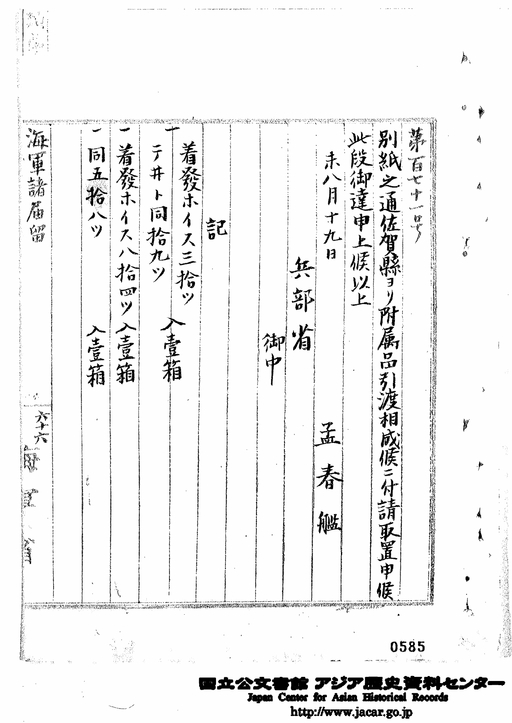 第百七十一号
別紙之通佐賀縣ヨリ附属品引渡相成候ニ付請取置申候
此段御達申上候以上
未八月十九日
孟春艦
兵部省
御中
記
一着發ホイス三拾ツ 入壹箱
一テ井ト同拾九ツ
一着發ホイス八拾四ツ 入壹箱
一同五拾八ツ 入壹箱
海軍諸届留
六十六
0585
国立公文書館 アジア歴史資料センター
Japan Center for Asian Historical Records
http://www.jacar.go.jp